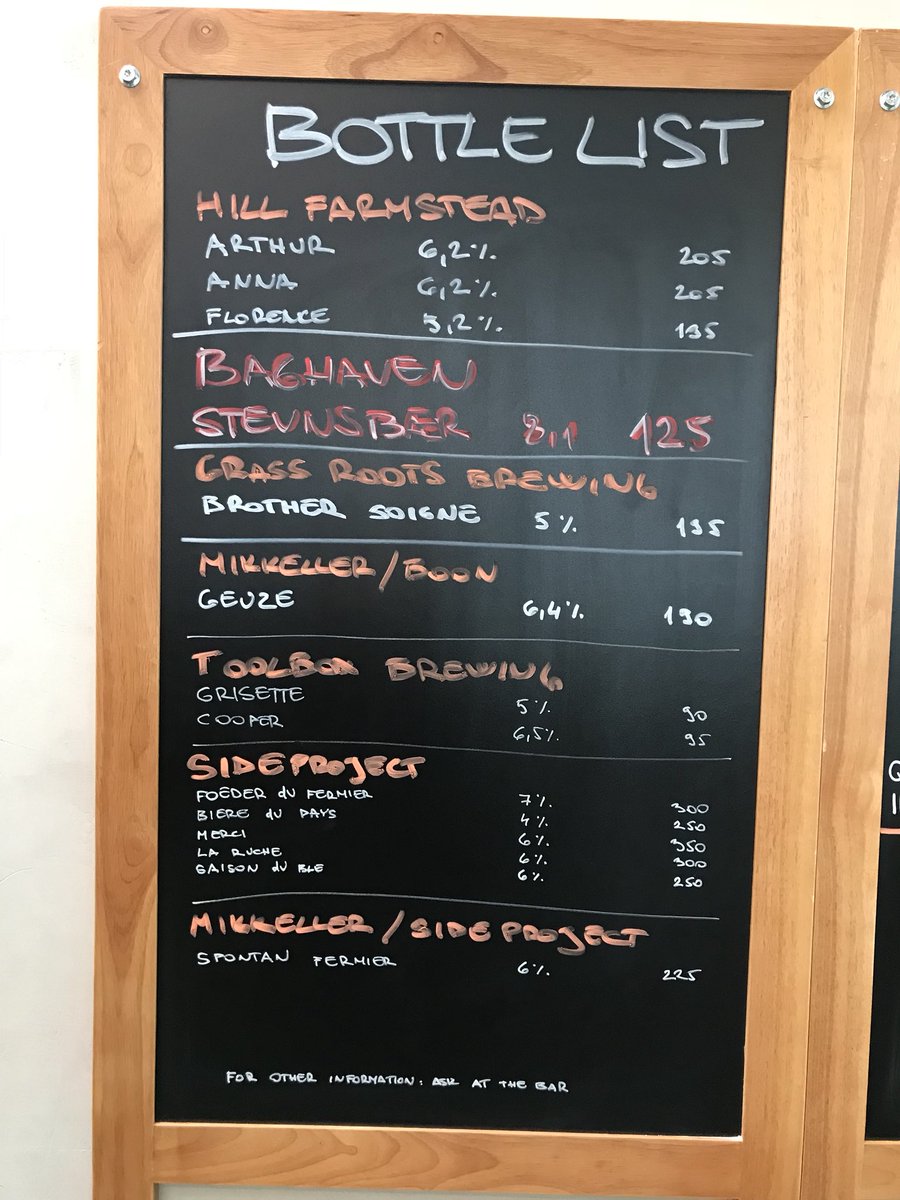 BOTTLE LIST
HILL FARMSTEAD
ARTHUR 6,2% 205
ANNA 6,2% 205
FLORENCE 5,2% 195
BAGHAVEN
STEVNSBÆR 8,1 125
GRASS ROOTS BREWING
BROTHER SOIGNE 5% 195
MIKKELLER/BOON
GEUZE 6,4% 190
TOOLBOX BREWING
GRISETTE 5% 90
COOPER 6,5% 95
SIDEPROJECT
FOËDER DU FERMIER 7% 300
BIERE DU PAYS 4% 250
MERCI 6% 350
LA RUCHE 6% 300
SAISON DU BLE 6% 250
MIKKELLER/SIDEPROJECT
SPONTAN FERMIER 6% 225
FOR OTHER INFORMATION: ASK AT THE BAR